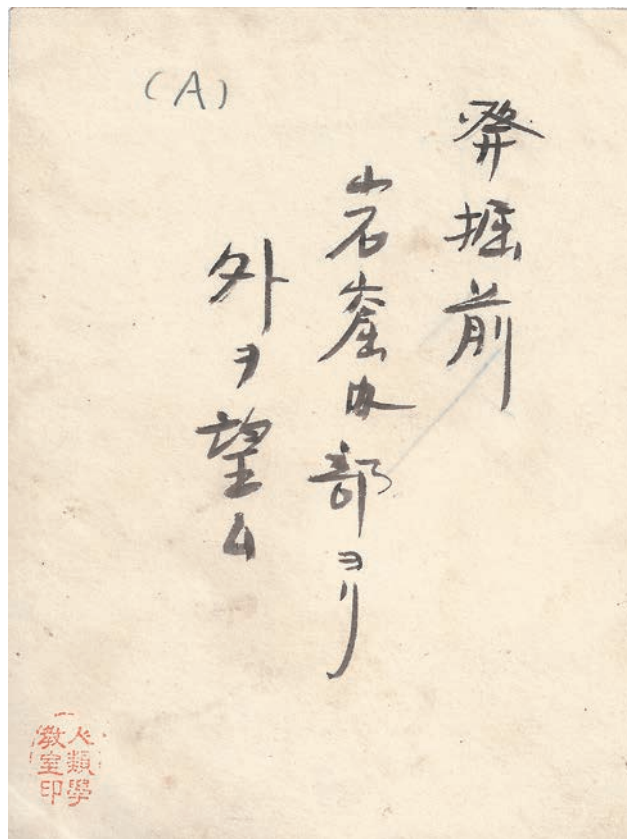 (A)
発掘前
岩崖内部ヨリ
外ヲ望ム
人類學
教室印